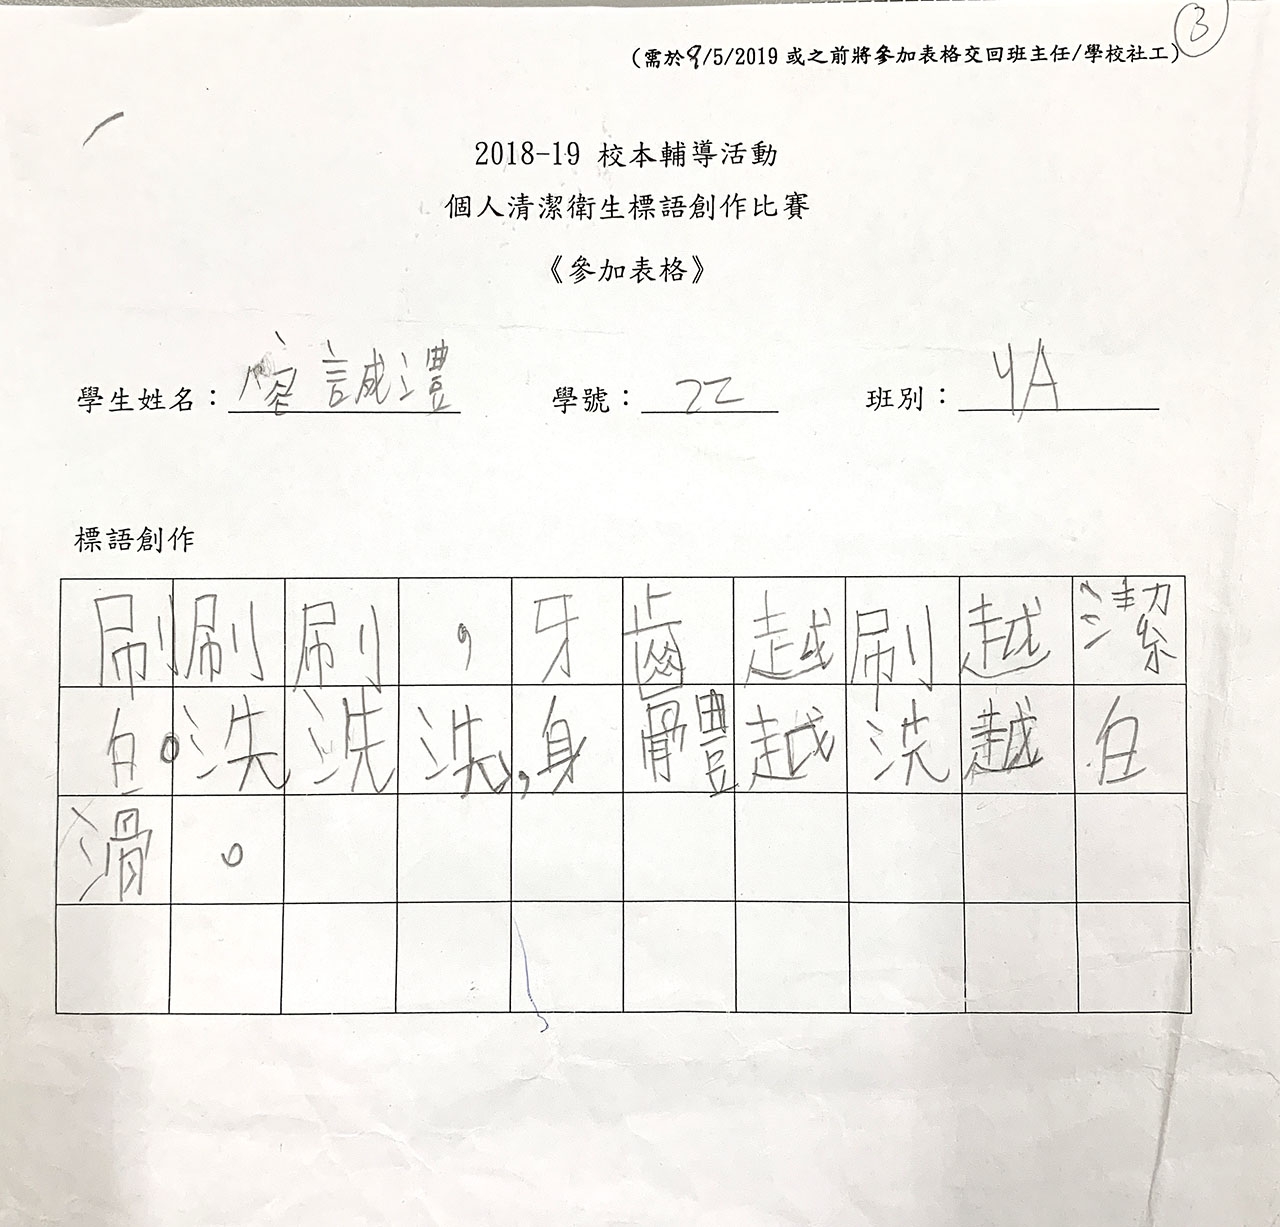 3
(需於8/5/2019 或之前將參加表格交回班主任/學校社工)
2018-19 校本輔導活動
個人清潔衛生標語創作比賽
《參加表格》
學生姓名： 誠澧 學號：22 班別：4A
標語創作
刷刷刷，牙齒越刷越潔
白。洗洗洗，身體越洗越白
滑。